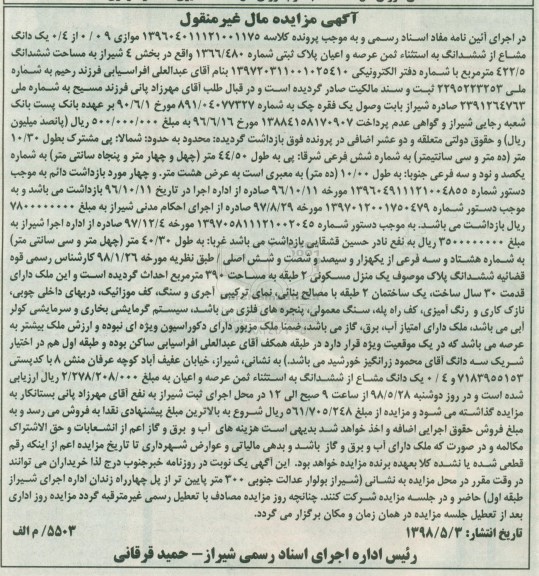 آگهی مزایده مال غیرمنقول
در اجرای آئین نامه مفاد اسناد رسمی و به موجب پرونده کلاسه ۱۳۹۶۰۴۰۱۱۱۲۱۰۰۱۱۷۵ موازی ۰/۰۹ از ۰/۴ یک دانگ
مشاع از ششدانگ به استثناء ثمن عرصه و اعیان پلاک ثبتی شماره ۱۳۶۶/۴۸۰ واقع در بخش ۴ شیراز به مساحت ششدانگ
۴۲۲/۵ مترمربع با شماره دفتر الکترونیکی ۱۳۹۷۲۰۳۱۱۰۰۱۰۲۵۴۱۰ بنام آقای عبدالعلی افراسیابی فرزند رحیم به شماره
ملی ۲۲۹۵۲۲۳۲۵۳ ثبت و سند مالکیت صادر گردیده است و در قبال طلب آقای مهرزاد پانی فرزند مسیح به شماره ملی
۲۳۹۱۲۶۴۷۶۳ صادره شیراز بابت وصول یک فقره چک به شماره ۸۹۱/۰۴۰۷۷۳۲۷ مورخ ۹۰/۶/۱ بر عهده بانک پست بانک
شعبه رجایی شیراز و گواهی عدم پرداخت ۱۳۸۸۴۱۵۸۱۷۰۹۰۷ مورخ ۹۶/۶/۱۶ به مبلغ ۵۰۰/۰۰۰/۰۰۰ ریال (پانصد میلیون
ریال) و حقوق دولتی متعلقه و دو عشر اضافی در پرونده فوق بازداشت گردیده: محدود به حدود: شمالا: پی مشترک بطول ۱۰/۳۰
متر (ده متر و سی سانتیمتر) به شماره شش فرعی شرقا: پی به طول ۴۴/۵۰ متر (چهل و چهار متر و پنجاه سانتی متر) به شماره
یکصد و نود و سه فرعی جنوبا: به طول ۱۰/۰۰ (ده متر) به معبری است به عرض هشت متر. و چهار مورد بازداشت دائم به موجب
دستور شماره ۱۳۹۶۰۴۹۱۱۱۲۱۰۰۴۸۵۵ مورخ ۹۶/۱۰/۱۱ صادره از اداره اجرا در تاریخ ۹۶/۱۰/۱۱ بازداشت می باشد و به
موجب دستور شماره ۱۳۹۷۰۱۲۰۰۱۷۵۰۴۷۹ مورخه ۹۷/۸/۲۹ صادره از اجرای احکام مدنی شیراز به مبلغ ۷۸۰۰۰۰۰۰۰۰
ریال بازداشت می باشد. به موجب دستور شماره ۱۳۹۷۰۵۸۱۱۱۲۱۰۰۲۰۴۵ مورخه ۹۷/۱۲/۴ صادره از اداره اجرا شیراز به
مبلغ ۳۵۰۰۰۰۰۰۰۰ ریال به نفع نادر حسین قشقایی بازداشت می باشد غربا: به طول ۴۰/۳۰ متر (چهل متر و سی سانتی متر)
به شماره هشتاد و سه فرعی از یکهزار و سیصد و شصت و شش اصلی / طبق نظریه مورخه ۹۸/۱/۲۶ کارشناس رسمی قوه
قضائیه ششدانگ پلاک موصوف یک منزل مسکونی ۲ طبقه به مساحت ۳۹۰ مترمربع احداث گردیده است و این ملک دارای
قدمت ۳۰ سال ساخت، یک ساختمان ۲ طبقه با مصالح بنایی، نمای ترکیبی آجری و سنگ، کف موزائیک، دربهای داخلی چوبی،
نازک کاری و رنگ آمیزی، کف راه پله، سنگ معمولی، پنجره های فلزی می باشد، سیستم گرمایشی بخاری و سرمایشی کولر
آبی می باشد، ملک دارای امتیاز آب، برق، گاز می باشد، ضمنا ملک مزبور دارای دکوراسیون ویژه ای نبوده و ارزش ملک بیشتر به
عرصه می باشد که در یک موقعیت ویژه قرار دارد در طبقه همکف آقای عبدالعلی افراسیابی ساکن بوده و طبقه اول هم در اختیار
شریک سه دانگ آقای محمود زرانگیز خورشید می باشد.) به نشانی: شیراز، خیابان عفیف آباد کوچه عرفان منش ۸ با کدپستی
۷۱۸۳۹۵۵۱۵۳ و ۰/۴ یک دانگ مشاع از ششدانگ به استثناء ثمن عرصه و اعیان به مبلغ ۲/۲۷۸/۲۰۸/۰۰۰ ریال ارزیابی
شده است و در روز دوشنبه ۹۸/۵/۲۸ از ساعت ۹ صبح الی ۱۲ در محل اجرای ثبت شیراز به نفع آقای مهرزاد پانی بستانکار به
مزایده گذاشته می شود و مزایده از مبلغ ۵۶۱/۷۰۵/۲۴۸ ریال شروع به بالاترین مبلغ پیشنهادی نقدا به فروش می رسد و به
مبلغ فروش حقوق اجرایی اضافه و اخذ خواهد شد بدیهی است هزینه های آب و برق و گاز اعم از انشعابات و حق الاشتراک
مکالمه و در صورت که ملک دارای آب و برق و گاز باشد و بدهی مالیاتی و عوارض شهرداری تا تاریخ مزایده اعم از اینکه رقم
قطعی شده یا نشده کلا بعهده برنده مزایده خواهد بود. این آگهی یک نوبت در روزنامه خبرجنوب درج لذا خریداران می توانند
در وقت مقرر در محل مزایده به نشانی (شیراز بولوار عدالت جنوبی ۳۰۰ متر پایین تر از پل چهارراه زندان اداره اجرای شیراز
طبقه اول) حاضر و در جلسه مزایده شرکت کنند. چنانچه روز مزایده مصادف با تعطیل رسمی غیرمترقبه گردد مزایده روز اداری
بعد از تعطیل جلسه مزایده در همان زمان و مکان برگزار می گردد.
تاریخ انتشار: ۱۳۹۸/۵/۳ ۵۵۰۳/م الف
رئیس اداره اجرای اسناد رسمی شیراز – حمید قرقانی